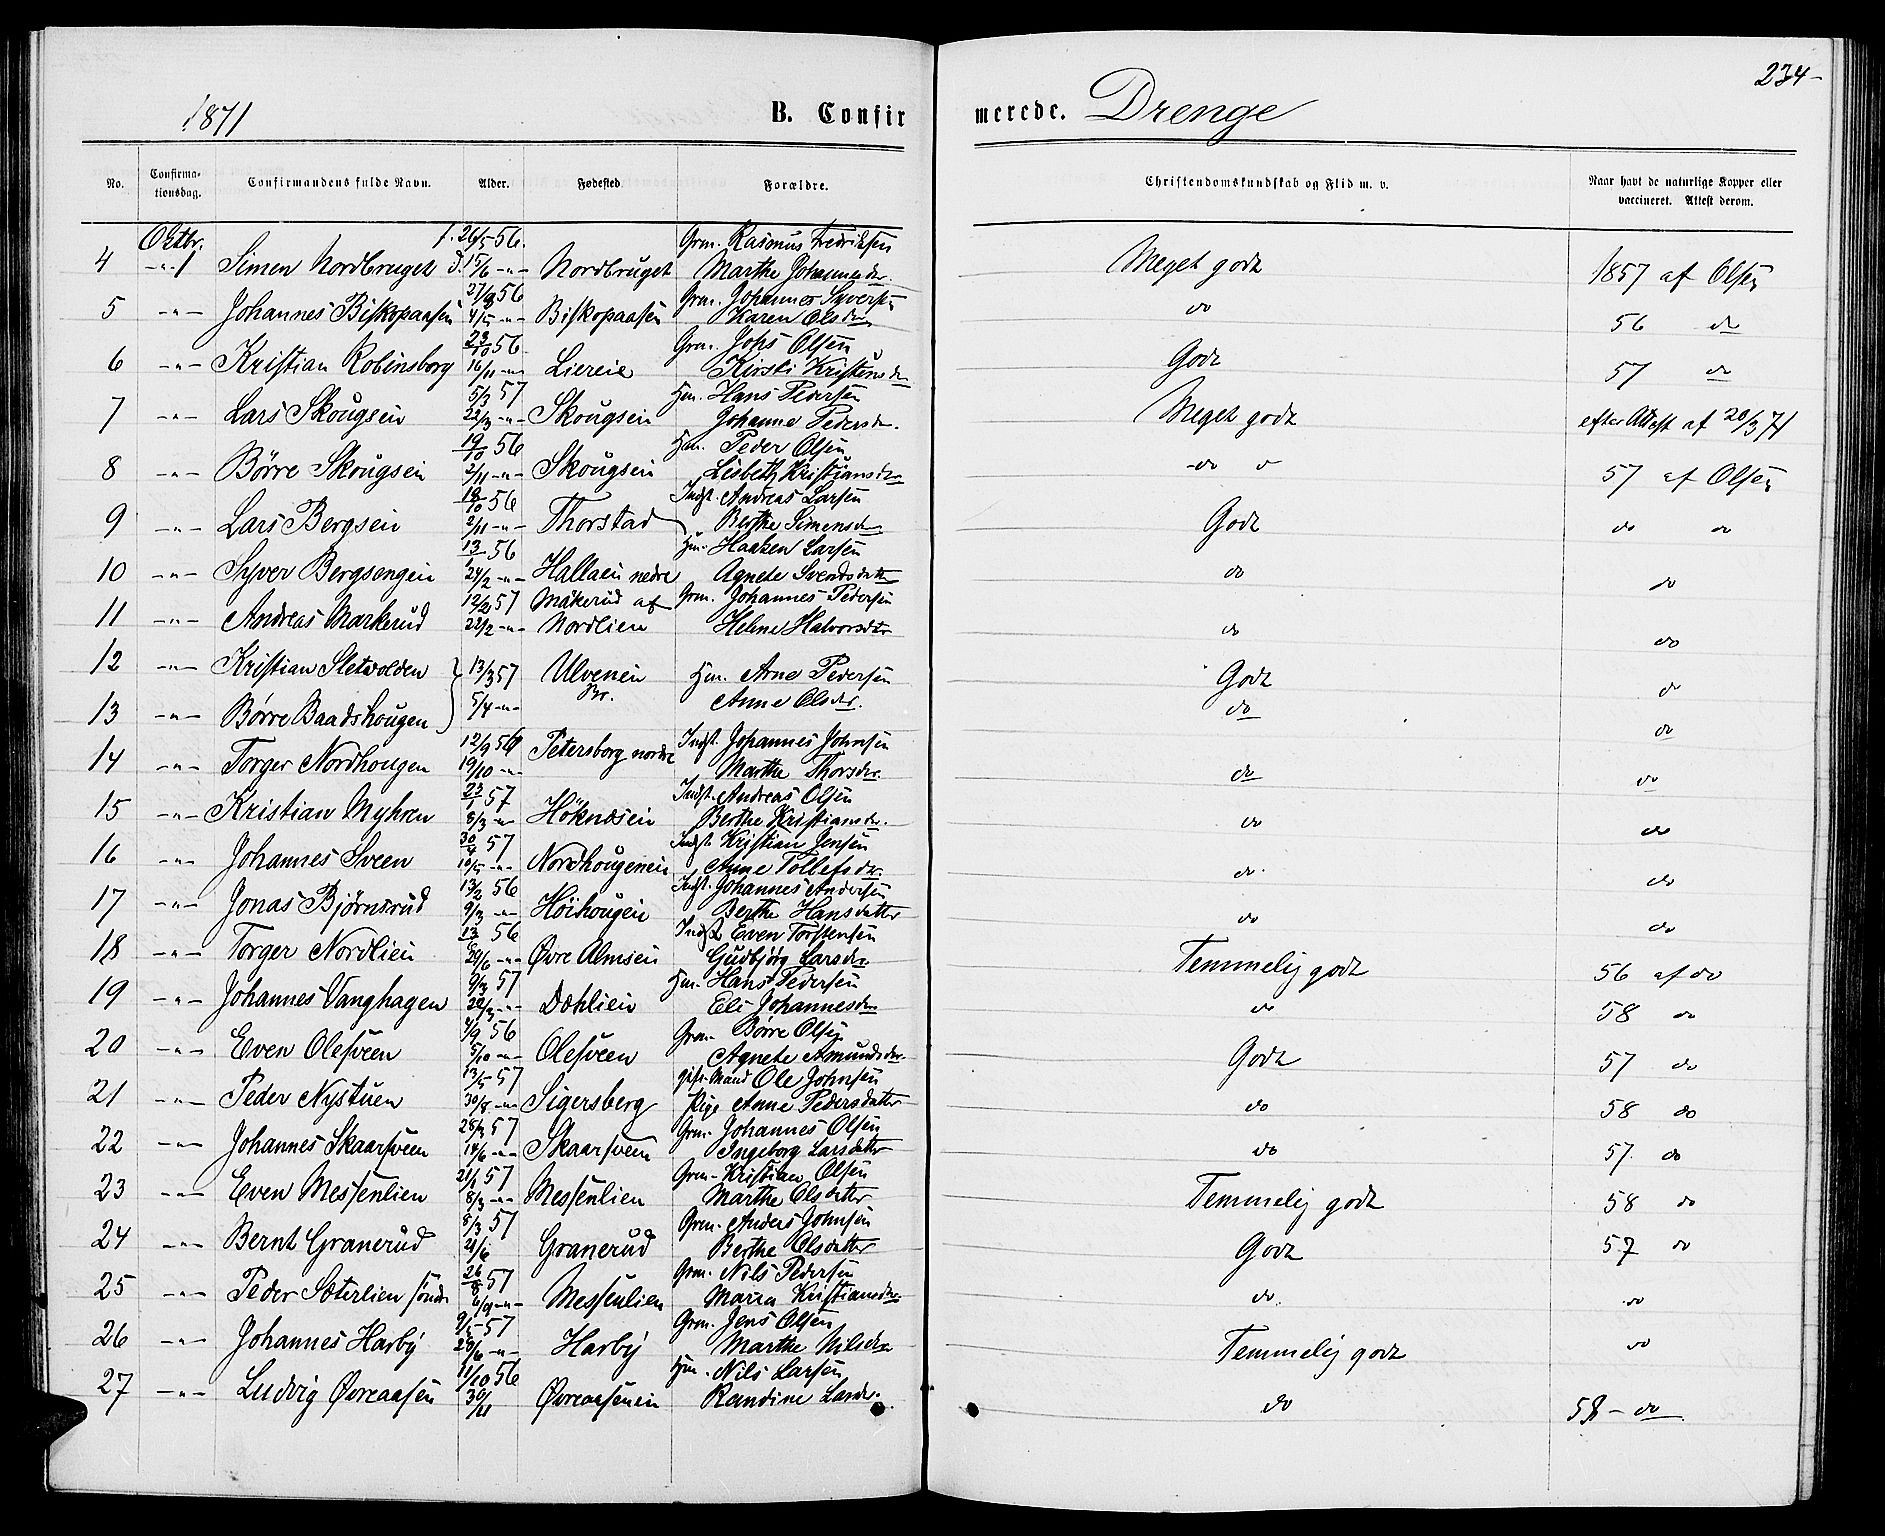 234-
1871 B. Confirmerede. Drenge
No. Confirmationsdag. Confirmandens fulde Navn. Alder. Fødested. Forældre. Christendomskundskab og Flid m. v. Naar havt de naturlige Kopper eller vaccineret. Attest derom.
Oktbr. f. 26/5 56. Grm. Rasmus Fredriksen
4 -"-1 Simen Nordbruget d. 15/6 -"- Nordbruget Marthe Johannesdr. Meget godt 1857 af Olsen
56 Grm. Johannes Syversen
5 -"- Johannes Biskopaasen 4/5 -"- Biskopaasen Karen Olsdr. do 56 do
23/10 56 Grm. Johs Olsen
6 -"- Kristian Robinsborg 16/11 -"- Liereie Kirsti Kristensdr Godt 57 do
5/3 57 Hm. Hans Pedersen
7 -"- Lars Skougsein 22/3 -"- Skougsein Johanne Pedersdr. Meget godt efter Attest af 20/3 71
19/10 56 Hm. Peder Olsen
8 -"- Børre Skougsein 2/11 -"- Skougsein Lisbeth Kristiansdr -do- 57 af Olsen
56 Indst. Andreas Larsen
9 -"- Lars Bergsein 2/11 -"- Thorstad Berthe Simensdr Godt do do
13/1 56 Hm. Haaken Larsen
10 -"- Syver Bergsengein 24/2 -"- Hallaein nedre Agnete Svendsdatter do do
12/2 57 Mäkerud af Grm. Johannes Pedersen
11 -"- Andreas Markerud 22/2 -"- Nordlien Helene Halvorsdtr do do
12 -"- Kristian Sletvolden 13/3 57 Ulvenein Hm. Arne Pedersen Godt do
Br.
13 -"- Børre Baadshougen 5/4 -"- Anne Olsdr. do do
12/9 56 Petersborg nordre Indst. Johannes Johnsen
14 -"- Torger Nordhougen 19/10 -"- Marthe Thorsdr. do do
23/1 57 Indst. Andreas Olsen
15 -"- Kristian Myhren 8/3 -"- Höknæsein Berthe Kristiansdr. do do
30/4 57 Indst. Kristian Jensen
16 -"- Johannes Sveen 10/5 -"- Nordhougenein Anne Tollefsdr. do. do
13/2 56 Indst. Johannes Andersen
17 -"- Jonas Bjørnsrud 9/3 -"- Höihougein Berthe Hansdatter do do
56 Indst Even Torstensen
18 -"- Torger Nordlien 29/6 -"- Øvre Almsein Gudbjørg Larsdr Temmelig godt 56 af do
57 Hm. Hans Pedersen
19 -"- Johannes Vanghagen -"- Dæhlien Eli Johannesdr do 58 do
4/9 56 Grm. Børre Olsen
20 -"- Even Olesveen 5/10 -"- Olesveen Agnete Amundsdtr. Godt 57 do
13/5 57 gift Mand Ole Johnsen
21 -"- Peder Nystuen 30/8 -"- Sigersberg Pige Anne Pedersdatter do 58 do
57 Grm. Johannes Olsen
22 -"- Johannes Skaarsveen 14/6 -"- Skaarsveen Ingeborg Larsdatter do 57 do
21/1 57 Grm- Kristian Olsen
23 -"- Even Messenlien 8/3 -"- Messenlien Marthe Olsdatter Temmelig godt 58 do
8/3 57 Grm. Anders Johnsen
24 -"- Bernt Granerud 21/6 Granerud Berthe Olsdatter Godt 57 do
26/8 57 Grm. Nils Pedersen
25 -"- Peder Sæterlien søndr 6/9 -"- Messenlien Maria Kristiansdr do do
9/5 57 Grm. Jens Olsen
26 -"- Johannes Harby 28/6 -"- Harby Marthe Nilsdr Temmelig godt do
11/10 56 Hm. Nils Larsen
27 -"- Ludvig Øvreaasen 30/11 Øvreaasenein Randine Larsdr. do 58 - do